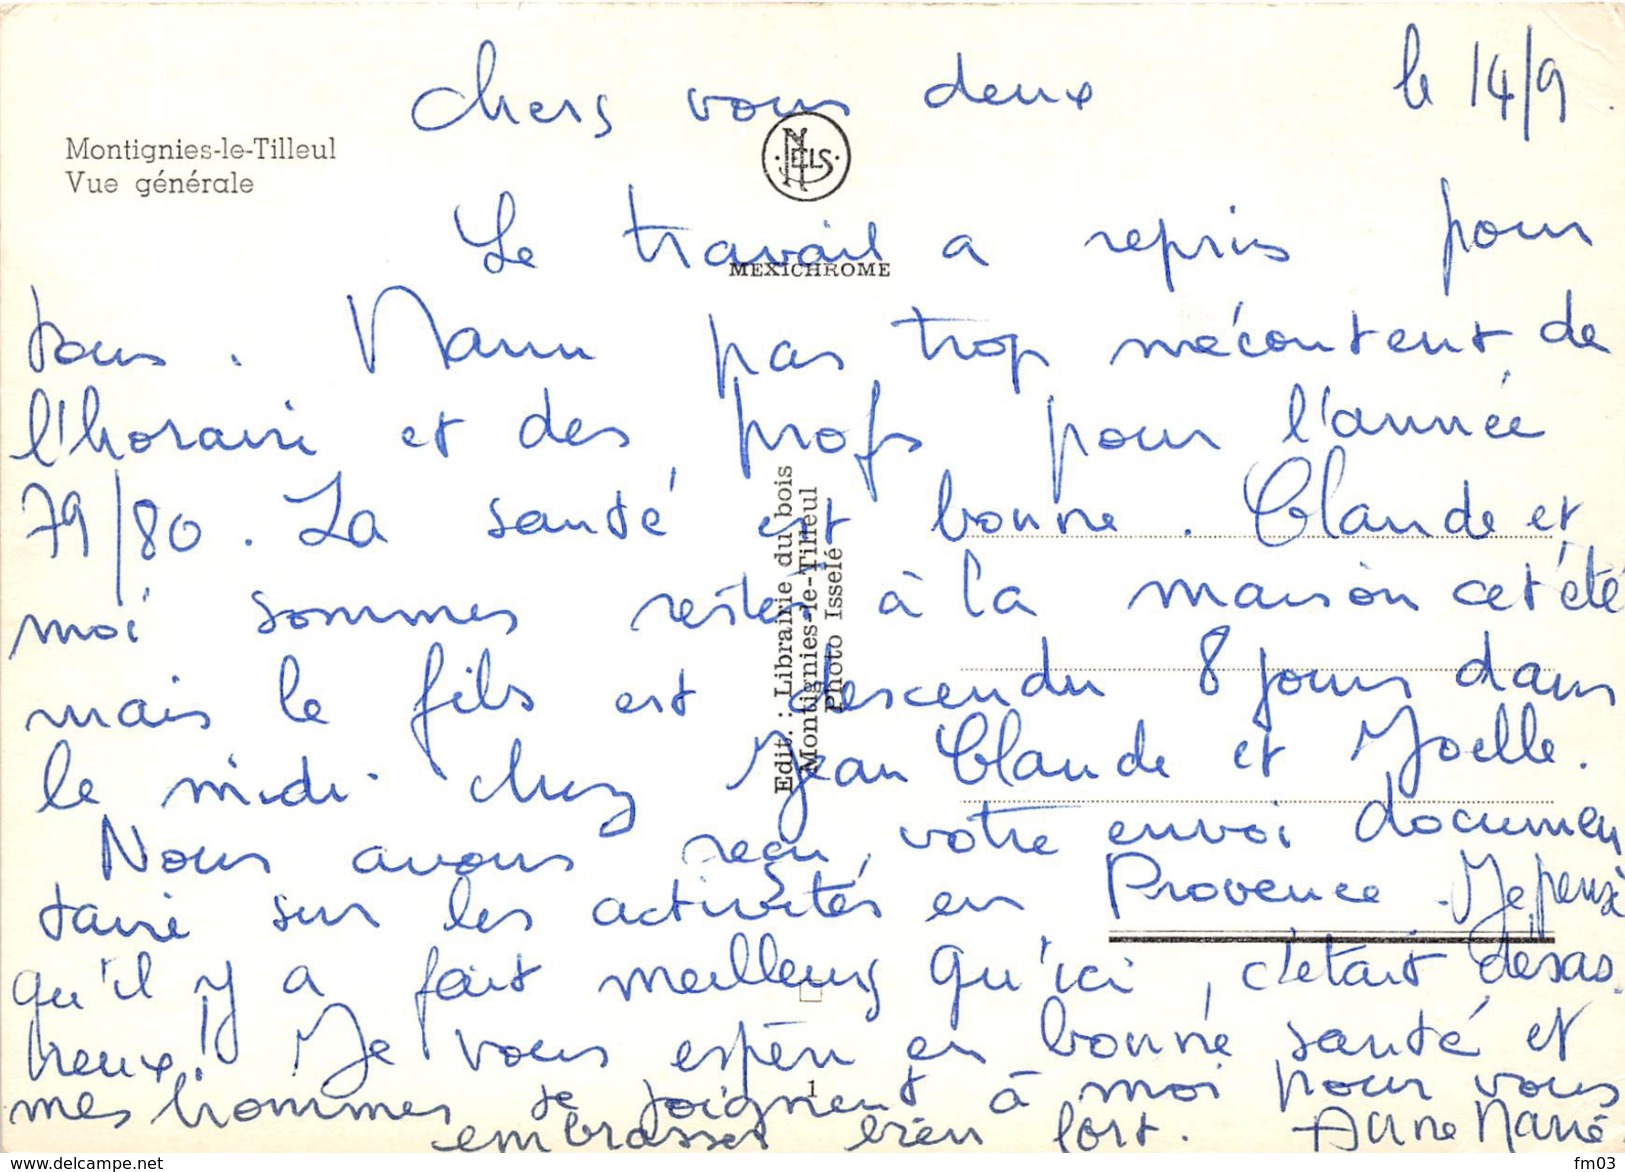 Chers vous deux le 14/9.
Montignies-le-Tilleul
Vue générale
NELS
MEXICHROME
Le travail a repris pour
tous. Manu pas trop mécontent de
l'horaire et des profs pour l'année
79/80. La santé est bonne. Claude et
moi sommes restés à la maison cet été
mais le fils est descendu 8 jours dans
le midi chez Jean Claude et Joelle.
Nous avons reçu votre envoi documen
taire sur les activités en Provence. Je peux
qu'il y a fait meilleur qu'ici, c'était desas
treux! Je vous espère en bonne santé et
mes hommes se joignent à moi pour vous
embrasser bien fort. Anne Marie
Edit.: Librairie du bois
Montignies-le-Tilleul
Photo Isselé
1
fm03